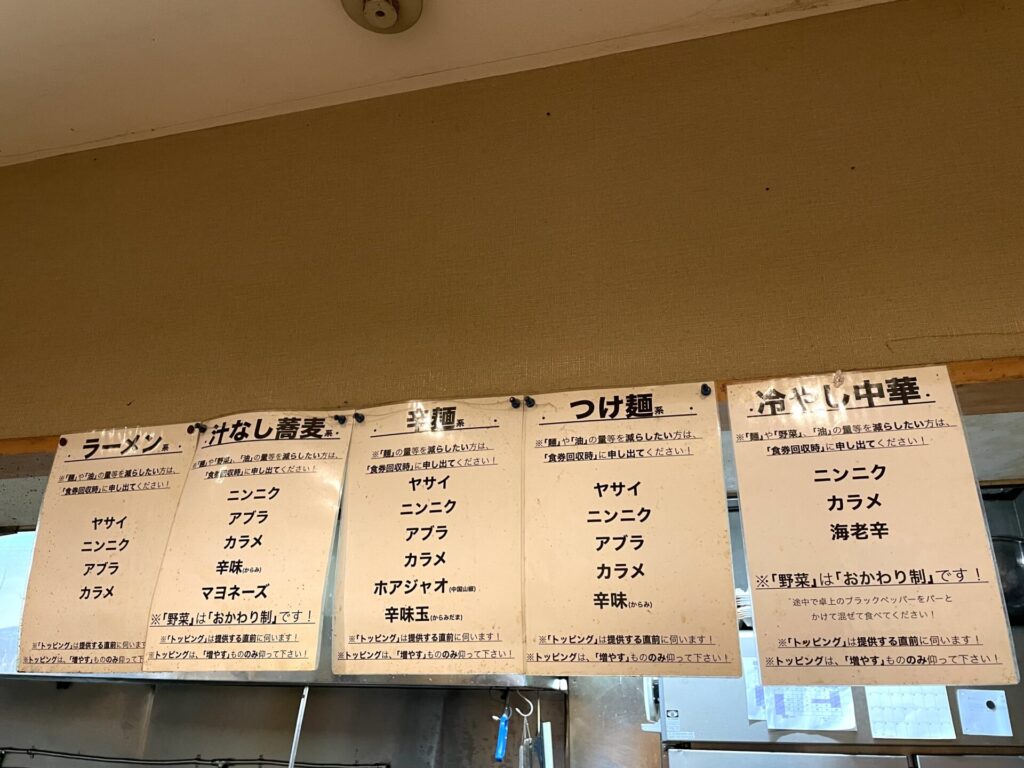 ラーメン系
※「麺」や「油」の量等を減らしたい方は、
「食券回収時」に申し出てください！
ヤサイ
ニンニク
アブラ
カラメ
※「トッピング」は提供する直前に伺い
※トッピングは、「増やす」もののみ仰って下
・汁なし蕎麦系・
※「麺」や「野菜」、「油」の量等を減らしたい方は、
「食券回収時」に申し出てください！
ニンニク
アブラ
カラメ
辛味(からみ)
マヨネーズ
※「野菜」は「おかわり制」です！
※「トッピング」は提供する直前に伺います！
※トッピングは、「増やす」もののみ仰って下さい！
辛麺系
※「麺」の量等を減らしたい方は、
「食券回収時」に申し出てください！
ヤサイ
ニンニク
アブラ
カラメ
ホアジャオ(中国山椒)
辛味玉(からみだま)
※「トッピング」は提供する直前に伺います！
※トッピングは、「増やす」もののみ仰って下さい！
・つけ麺系・
※「麺」や「油」の量等を減らしたい方は、
「食券回収時」に申し出てください！
ヤサイ
ニンニク
アブラ
カラメ
辛味(からみ)
※「トッピング」は提供する直前に伺います！
※トッピングは、「増やす」もののみ仰って下さい！
・冷やし中華・
※「麺」や「野菜」、「油」の量等を減らしたい方は、
「食券回収時」に申し出てください！
ニンニク
カラメ
海老辛
※「野菜」は「おかわり制」です！
途中で卓上のブラックペッパーをバーと
かけて混ぜて食べてください！
※「トッピング」は提供する直前に伺います！
※トッピングは、「増やす」もののみ仰って下さい！